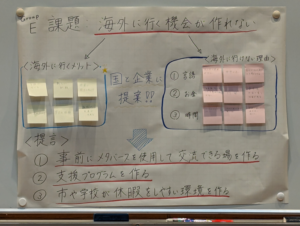 Group
E 課題 海外に行く機会が作れない
<海外に行くメリット>
国と企業に
提案!!
<海外に行けない理由>
① 言語
② お金
③ 時間
<提言>
① 事前にメタバースを使用して交流できる場を作る
② 支援プログラムを作る
③ 市や学校が休暇をしやすい環境を作る